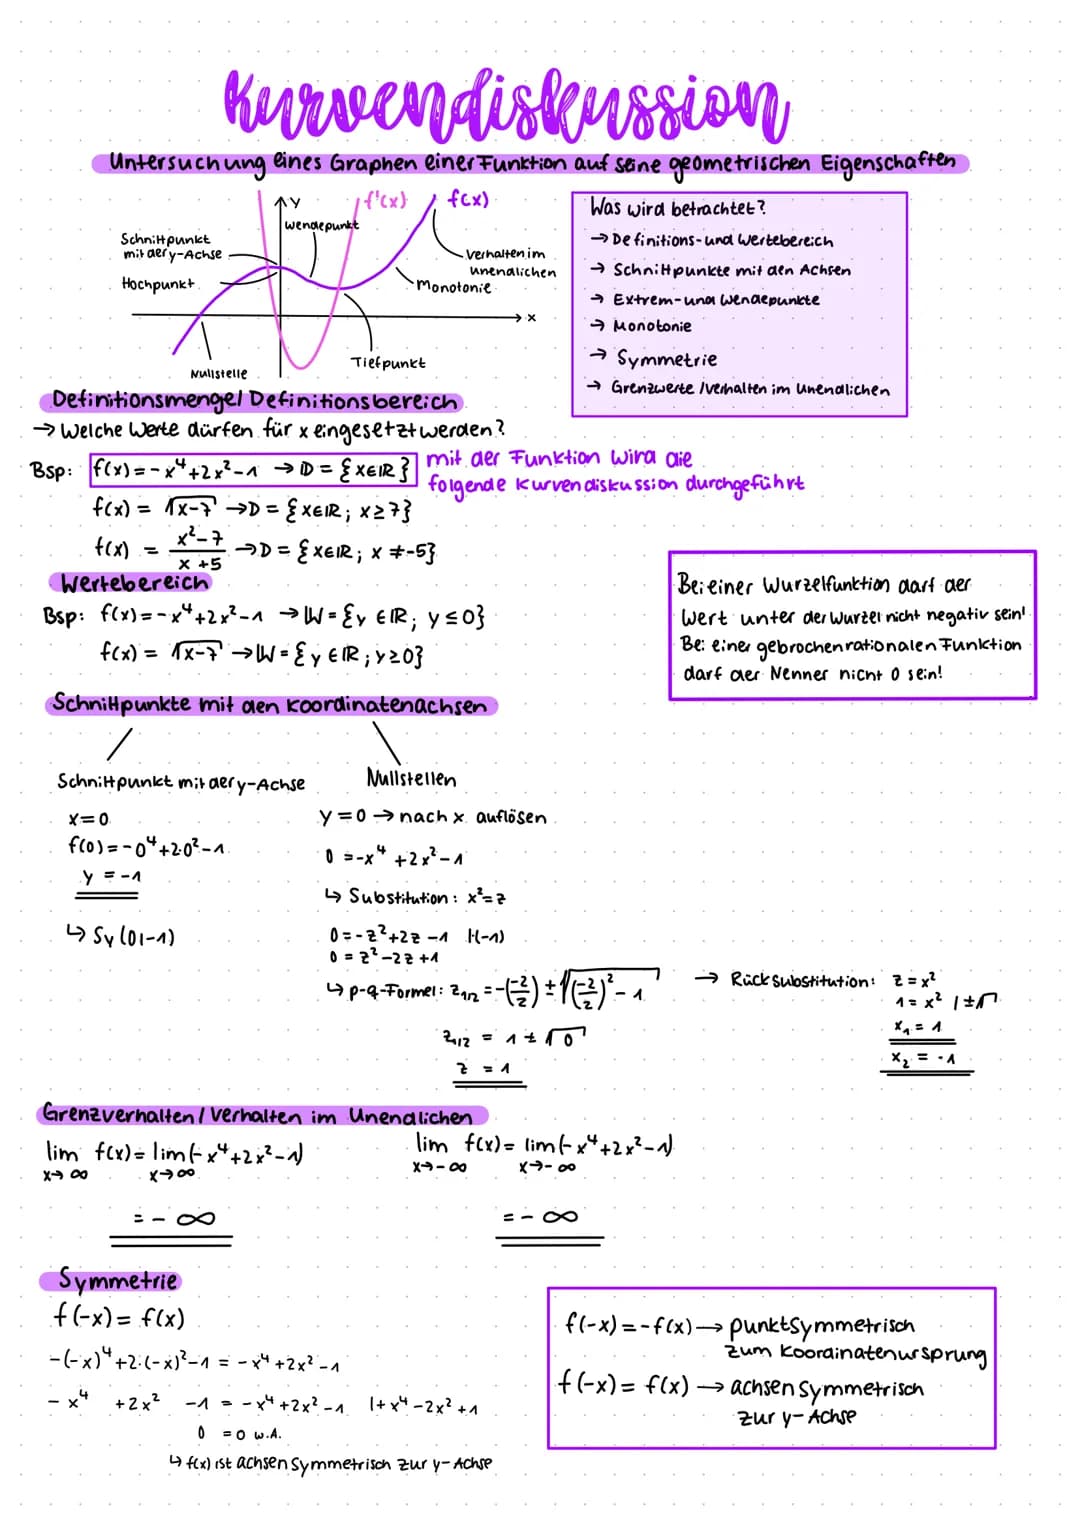 Kurvendiskussion
Untersuchung eines Graphen einer Funktion auf seine geometrischen Eigenschaften
y
f'(x)
f(x)
Wendepunkt
Schnittpunkt
mit der y-Achse
Hochpunkt
Verhalten im
unendlichen
Monotonie
x
Tiefpunkt
Nullstelle
Was wird betrachtet?
→ Definitions- und Wertebereich
→ Schnittpunkte mit den Achsen
→ Extrem- und Wendepunkte
→ Monotonie
→ Symmetrie
→ Grenzwerte / Verhalten im Unendlichen
Definitionsmenge / Definitionsbereich
→ Welche Werte dürfen für x eingesetzt werden?
Bsp: f(x) = -x⁴+2x²-1 → D = {x∈ℝ}
mit der Funktion wird die
folgende Kurvendiskussion durchgeführt
f(x) = √x-7 → D = {x∈ℝ; x≥7}
f(x) = x²-7 / x+5 → D = {x∈ℝ; x ≠ -5}
Wertebereich
Bsp: f(x) = -x⁴+2x²-1 → W = {y ∈ℝ; y ≤ 0}
f(x) = √x-7 → W = {y ∈ℝ; y≥0}
Bei einer Wurzelfunktion darf der
Wert unter der Wurzel nicht negativ sein!
Bei einer gebrochenrationalen Funktion
darf der Nenner nicht 0 sein!
Schnittpunkte mit den Koordinatenachsen
Schnittpunkt mit der y-Achse
x=0
f(0) = -0⁴+2·0²-1
y = -1
↳ Sy (0|-1)
Nullstellen
y = 0 → nach x auflösen
0 = -x⁴ +2x²-1
↳ Substitution: x²=z
0 = -z²+2z -1 |·(-1)
0 = z² -2z +1
↳ p-q-Formel: z₁/₂ = -(-2/2) ± √(-2/2)² - 1
z₁/₂ = 1 ± √0
z = 1
→ Rücksubstitution: z = x²
1 = x² | ±√
x₁ = 1
x₂ = -1
Grenzverhalten / Verhalten im Unendlichen
lim f(x) = lim (-x⁴+2x²-1)
x→∞ x→∞
= - ∞
lim f(x) = lim (-x⁴+2x²-1)
x→-∞ x→-∞
= - ∞
Symmetrie
f(-x) = f(x)
-(-x)⁴+2·(-x)²-1 = -x⁴+2x²-1
-x⁴ +2x² -1 = -x⁴+2x²-1 |+x⁴-2x²+1
0 = 0 w.A.
↳ f(x) ist achsensymmetrisch zur y-Achse
f(-x) = -f(x) → punktsymmetrisch
zum Koordinatenursprung
f(-x) = f(x) → achsensymmetrisch
zur y-Achse